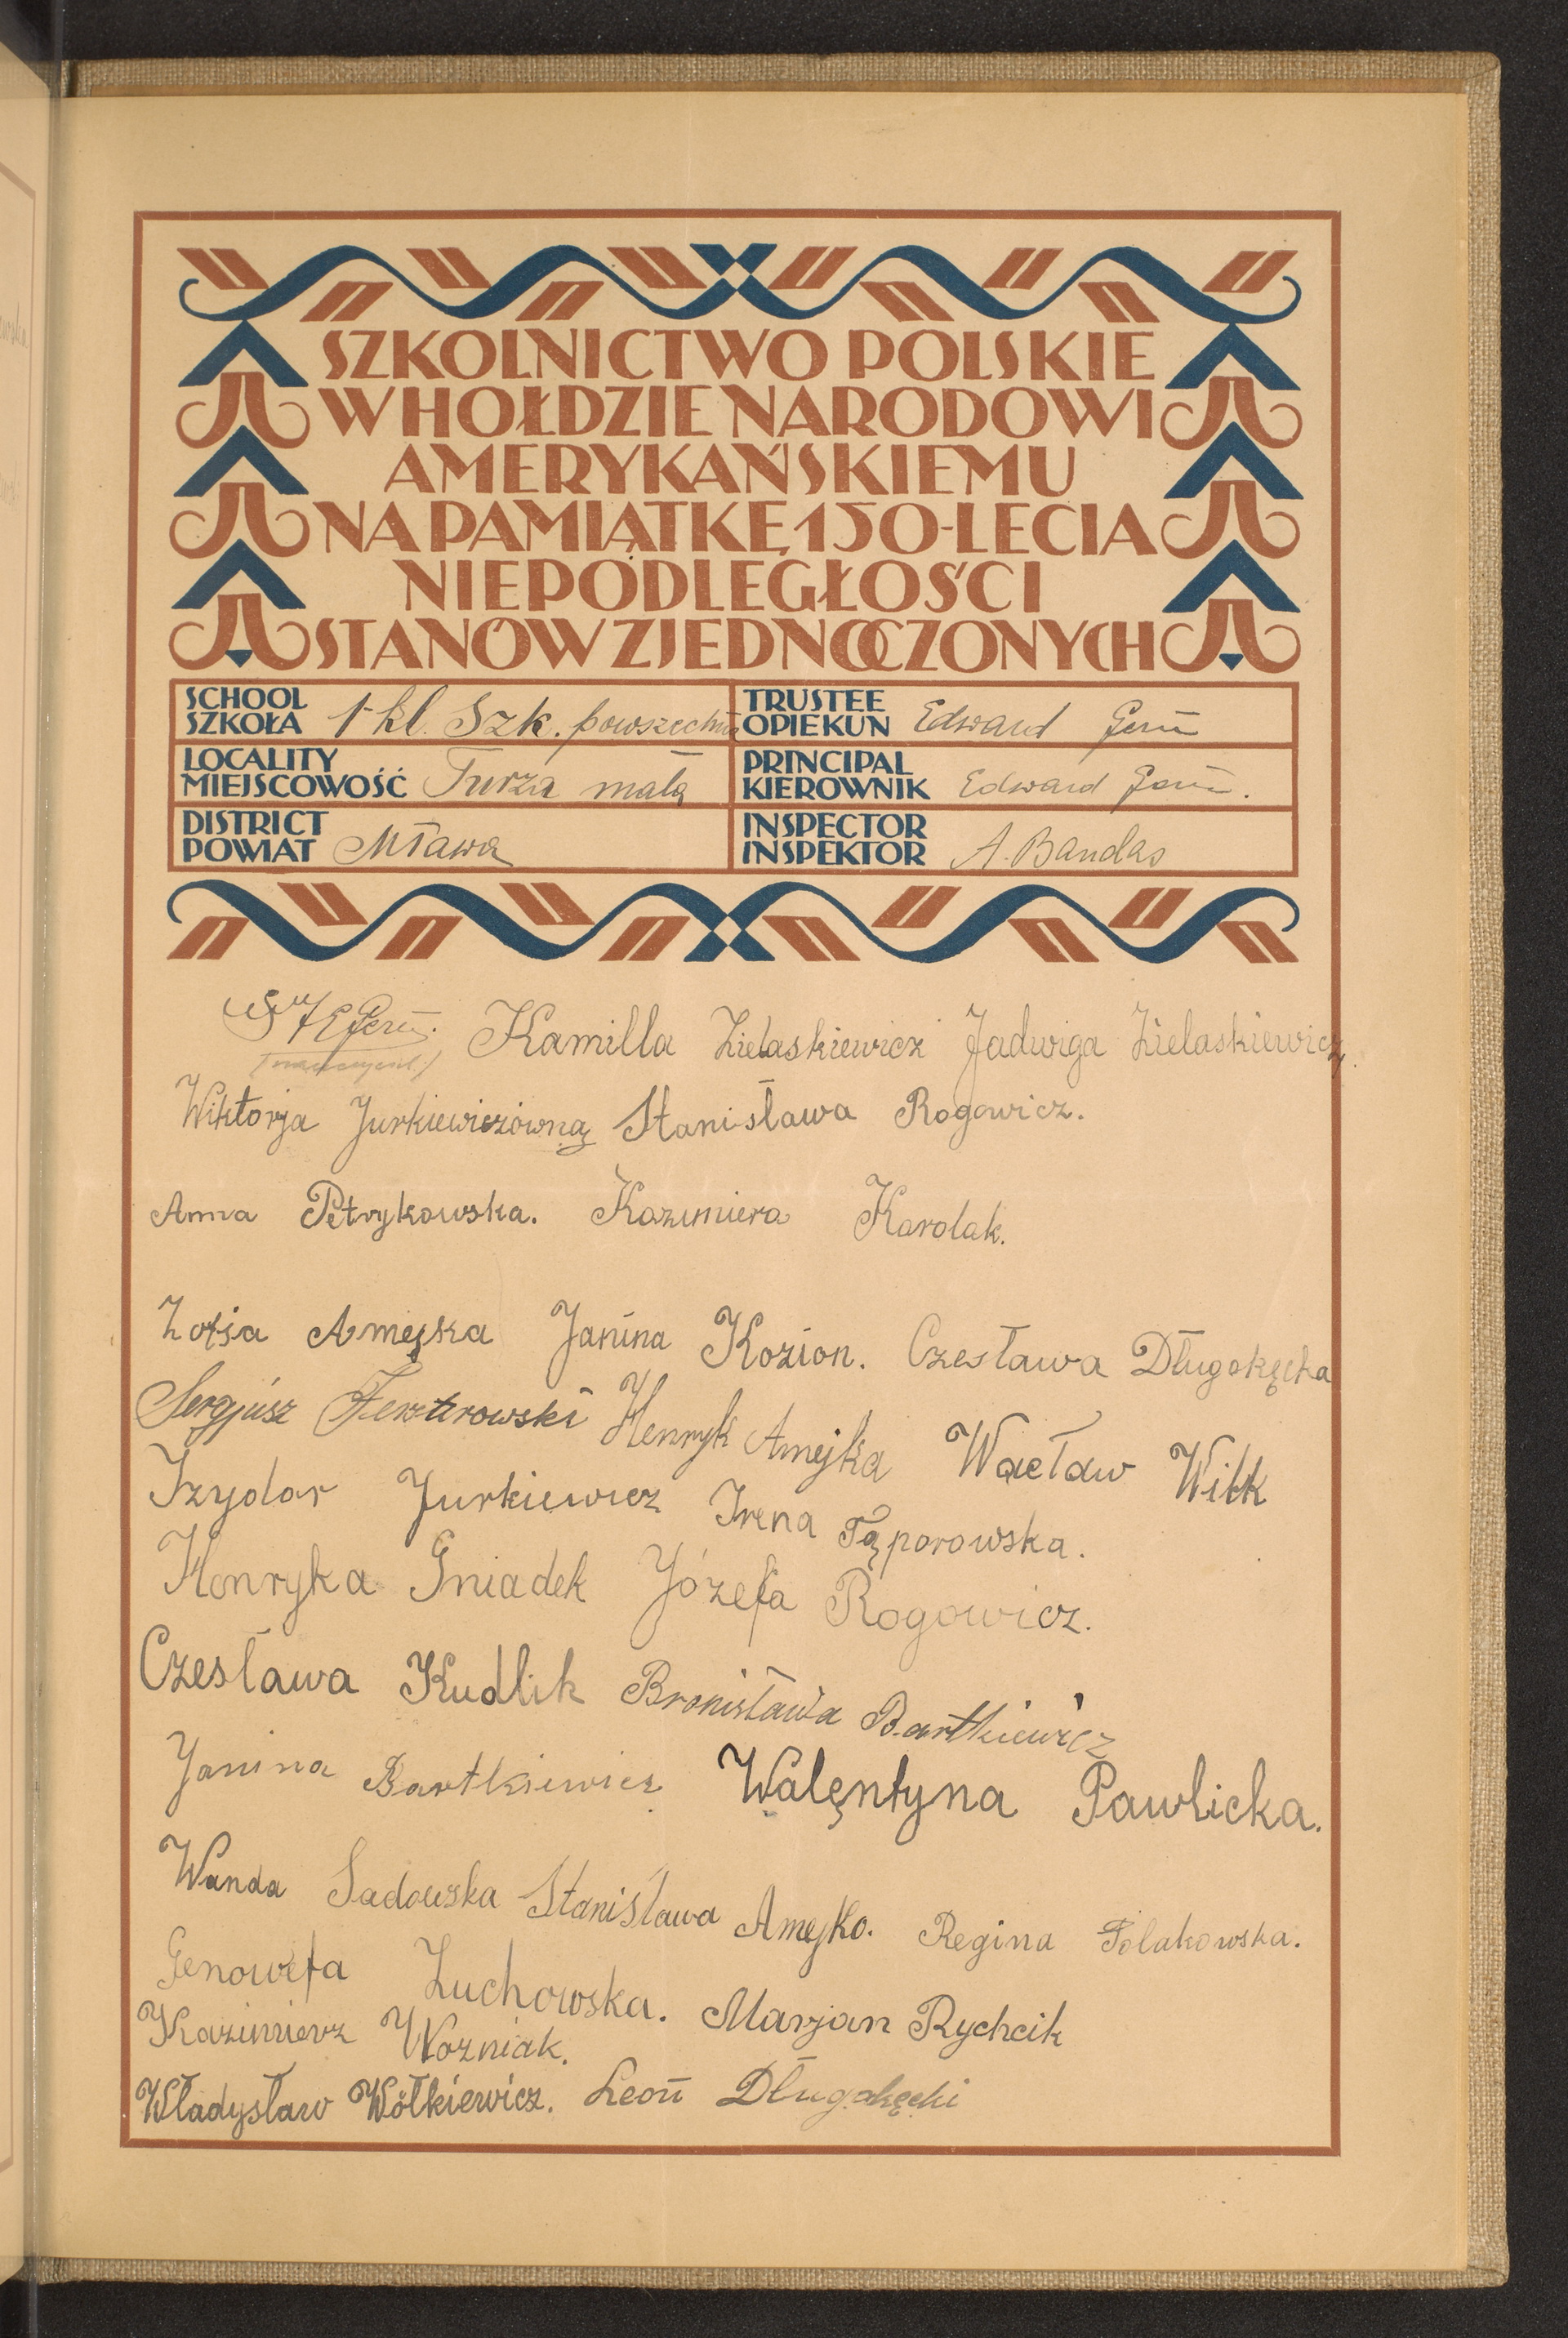 SZKOLNICTWO POLSKIE
W HOŁDZIE NARODOWI
AMERYKAŃSKIEMU
NA PAMIĄTKĘ 150-LECIA
NIEPODLEGŁOŚCI
STANÓW ZJEDNOCZONYCH
SCHOOL SZKOŁA 1 kl. Szk. powszechna
TRUSTEE OPIEKUN Edward
LOCALITY MIEJSCOWOŚĆ Turza mała
PRINCIPAL KIEROWNIK Edward
DISTRICT POWIAT Mława
INSPECTOR INSPEKTOR A. Bandas
Kamilla Zielaskiewicz Jadwiga Zielaskiewicz.
Wiktorja Jurkiewiczówna Stanisława Rogowicz.
Anna Petrykowska. Kazimiera Karolak.
Zofia Amejka Janina Kozion. Czesława Długokęcka
Sergjusz Henryk Amejka Wacław Wilk
Izydor Jurkiewicz Irena Tąporowska.
Henryka Gniadek Józefa Rogowicz.
Czesława Kudlik Bronisława Bartkiewicz
Janina Bartkiewicz Walęntyna Pawlicka.
Wanda Sadowska Stanisława Amejko. Regina Polakowska.
Genowefa Żuchowska. Marjan Rychcik
Kazimierz Wozniak.
Władysław Wółkiewicz. Leon Długokęcki